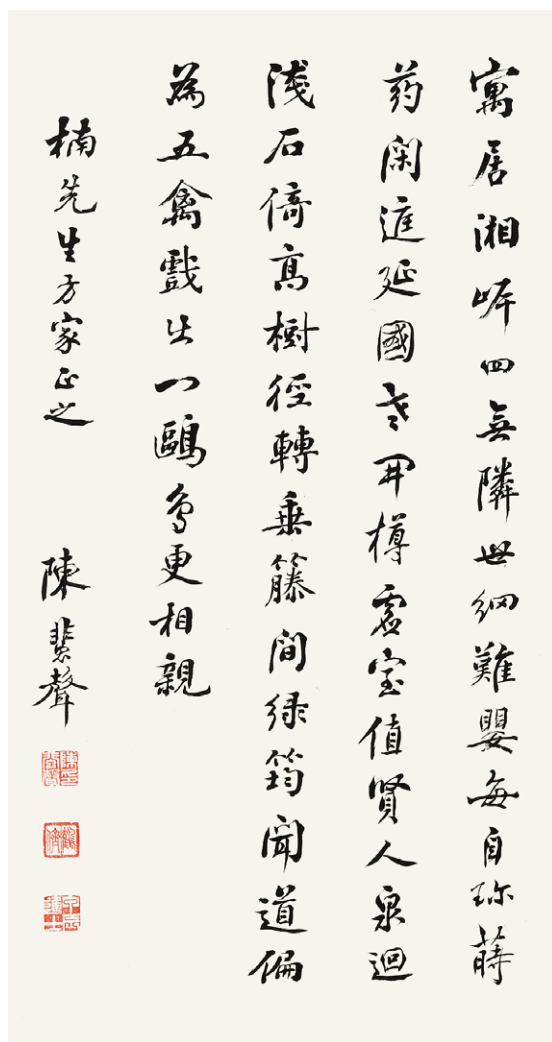 寓居湘岸四無隣世網難嬰每自珍蒔
药閑庭延國老開樽虛室值賢人泉迴
淺石倚高樹徑轉垂籐間綠筠聞道偏
為五禽戲出門鷗鳥更相親
楠先生方家正之
陳裴聲